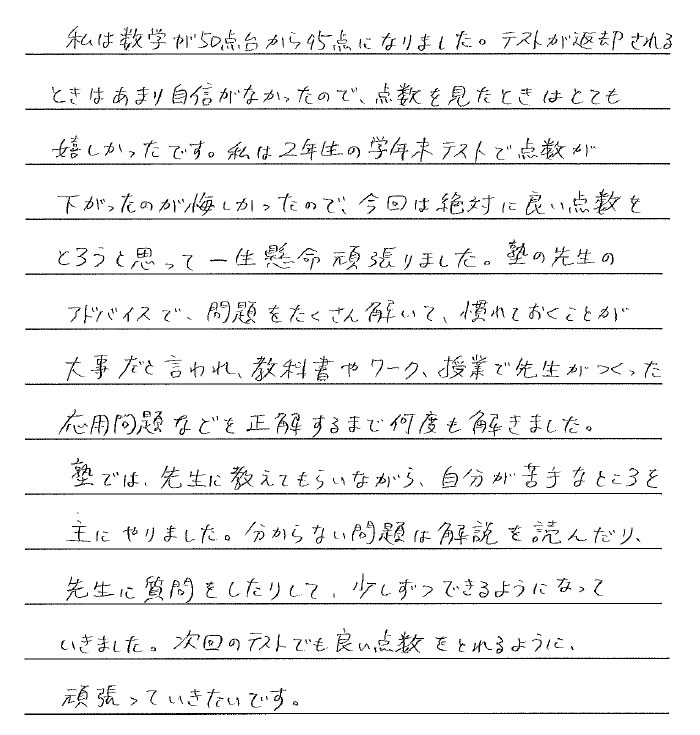 私は数学が50点台から95点になりました。テストが返却される
ときはあまり自信がなかったので、点数を見たときはとても
嬉しかったです。私は2年生の学年末テストで点数が
下がったのが悔しかったので、今回は絶対に良い点数を
とろうと思って一生懸命頑張りました。塾の先生の
アドバイスで、問題をたくさん解いて、慣れておくことが
大事だと言われ、教科書やワーク、授業で先生がつくった
応用問題などを正解するまで何度も解きました。
塾では、先生に教えてもらいながら、自分が苦手なところを
主にやりました。分からない問題は解説を読んだり、
先生に質問をしたりして、少しずつできるようになって
いきました。次回のテストでも良い点数をとれるように、
頑張っていきたいです。